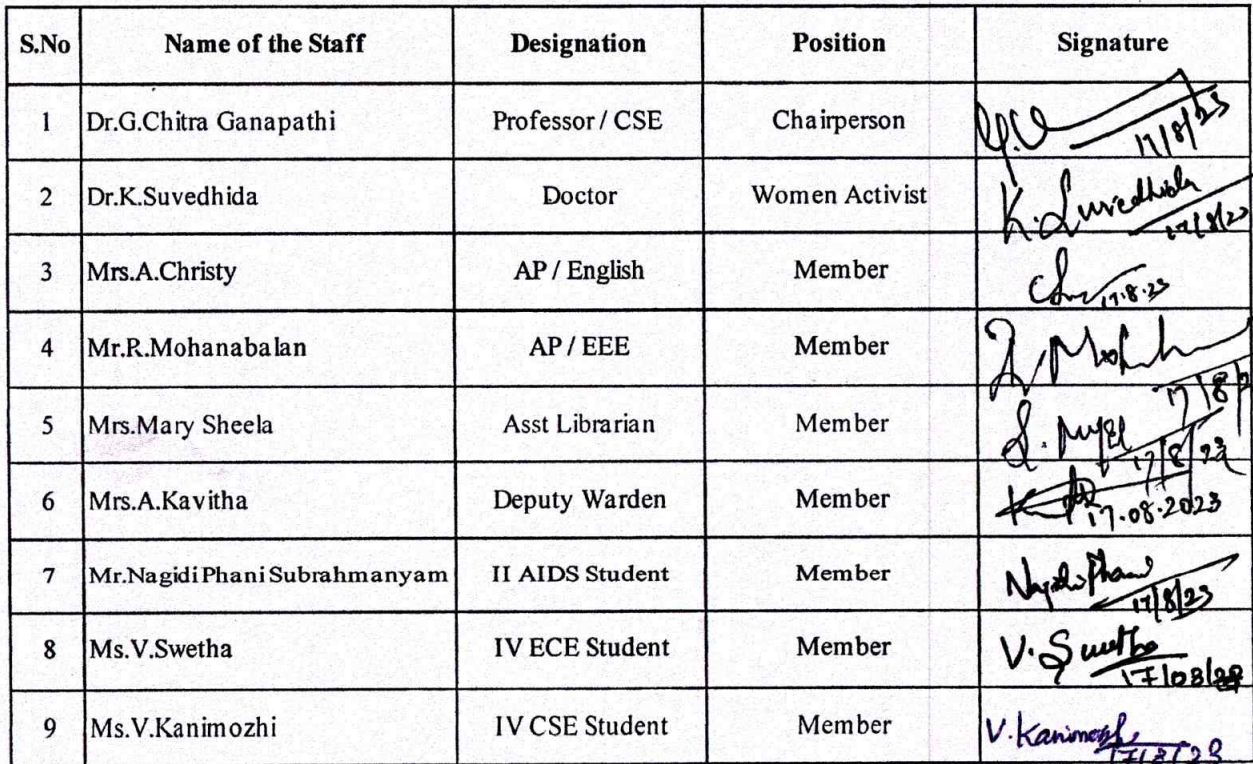 S.No Name of the Staff Designation Position Signature
1 Dr.G.Chitra Ganapathi Professor / CSE Chairperson
17/8/23
2 Dr.K.Suvedhida Doctor Women Activist K.Suvedhida
17/8/23
3 Mrs.A.Christy AP / English Member
17.8.23
4 Mr.R.Mohanabalan AP / EEE Member
17/8/
5 Mrs.Mary Sheela Asst Librarian Member
17/8/23
6 Mrs.A.Kavitha Deputy Warden Member
17.08.2023
7 Mr.Nagidi Phani Subrahmanyam II AIDS Student Member
17/8/23
8 Ms.V.Swetha IV ECE Student Member V.Swetha
17/08/
9 Ms.V.Kanimozhi IV CSE Student Member V.Kanimozhi
17/8/23